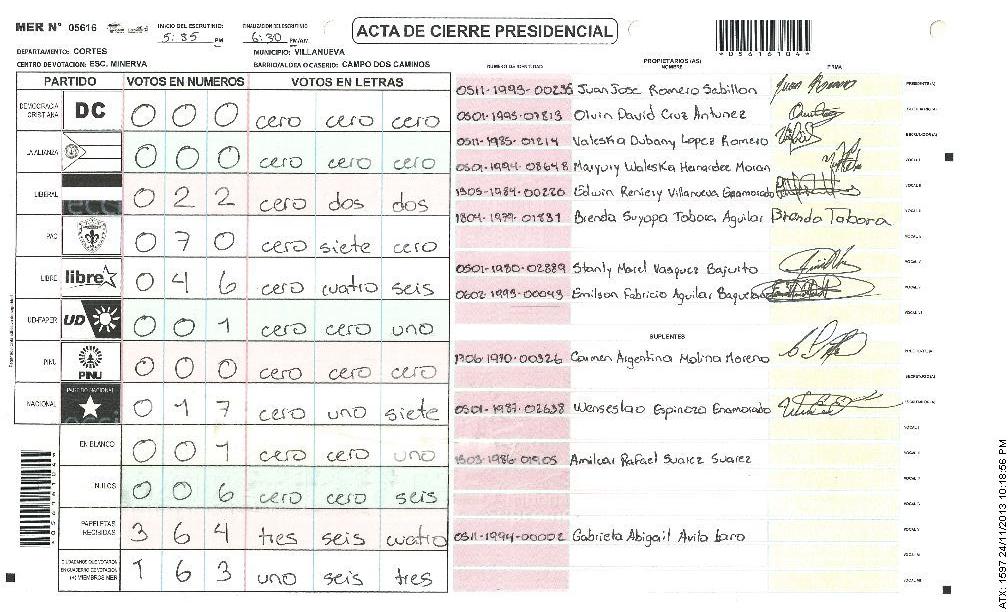 MER Nº 05616
INICIO DEL ESCRUTINIO: 5:35 PM
FINALIZACION DEL ESCRUTINIO 6:30 PM/AM
ACTA DE CIERRE PRESIDENCIAL
*05616104*
DEPARTAMENTO: CORTES
MUNICIPIO: VILLANUEVA
CENTRO DE VOTACION: ESC. MINERVA
BARRIO/ALDEA O CASERIO: CAMPO DOS CAMINOS
NUMERO DE IDENTIDAD
PROPIETARIOS (AS)
NOMBRE
FIRMA
PARTIDO VOTOS EN NUMEROS VOTOS EN LETRAS
DEMOCRACIA CRISTIANA DC 0 0 0 cero cero cero
LA ALIANZA 0 0 0 cero cero cero
LIBERAL 0 2 2 cero dos dos
PAC 0 7 0 cero siete cero
LIBRE libre 0 4 6 cero cuatro seis
UD-FAPER UD 0 0 1 cero cero uno
PINU PINU 0 0 0 cero cero cero
NACIONAL PARTIDO NACIONAL 0 1 7 cero uno siete
EN BLANCO 0 0 1 cero cero uno
NULOS 0 0 6 cero cero seis
PAPELETAS RECIBIDAS 3 6 4 tres seis cuatro
CIUDADANOS QUE VOTARON EN CUADERNO DE VOTACION (+) MIEMBROS MER 1 6 3 uno seis tres
0511-1993-00235 Juan Jose Romero Sabillon PRESIDENTE(A)
0501-1995-07813 Olvin David Cruz Antunez
0511-1985-01214 Valeska Dubany Lopez Romero
0501-1994-08648 Maryury Waleska Hernandez Moran
1505-1984-00220 Edwin Reniery Villanueva Enamorado
1804-1979-01831 Brenda Suyapa Tabora Aguilar Brenda Tabora
0501-1980-02889 Stanly Marel Vasquez Bajurto
0602-1993-00043 Emilson Fabricio Aguilar
SUPLENTES
1706-1970-00326 Carmen Argentina Molina Moreno
0501-1987-02638 Wenseslao Espinoza Enamorado
1503-1986-01505 Amilcar Rafael Suarez Suarez
0511-1994-00002 Gabriela Abigail Avila Laro
ATX: 1597 24/11/2013 10:18:56 PM